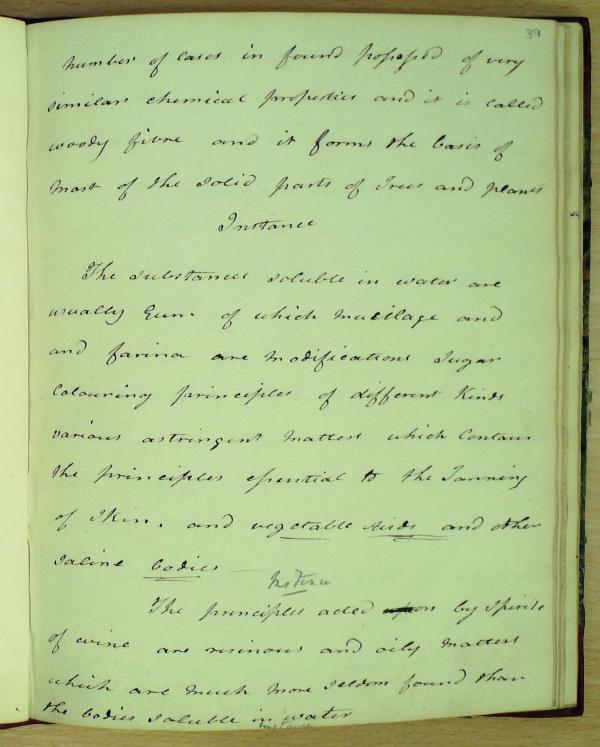 39
number of cases in found possessed of very
similar chemical properties and it is called
woody fibre and it forms the basis of
most of the solid parts of Trees and plants
Instance
The substances soluble in water are
usually Gum of which mucilage and
and farina are modifications Sugar
Colouring principles of different Kinds
various astringent matters which Contain
the principles essential to the Tanning
of Skin, and vegetable Acids and other
saline bodies
Instance
The principles acted upon by Spirits
of wine are resinous and oily matters
which are much more seldom found than
the bodies soluble in water